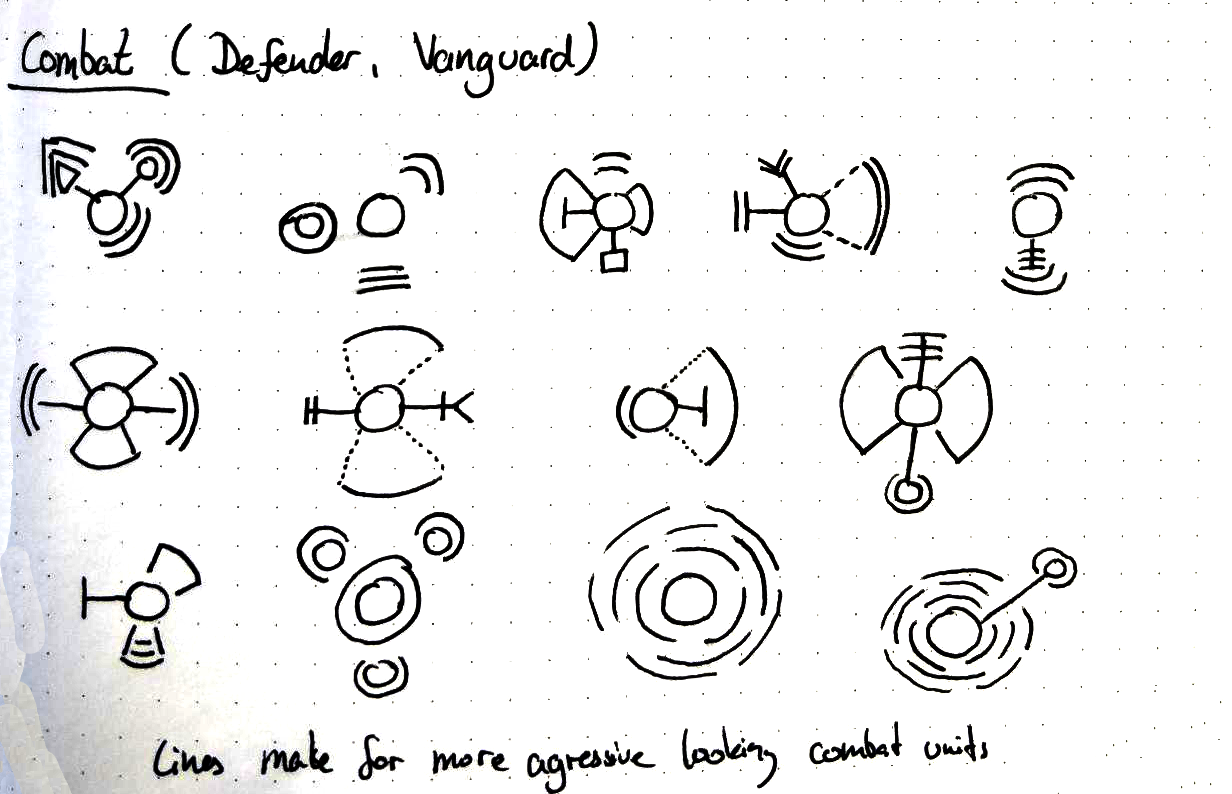 Combat (Defender, Vanguard)
Lines make for more agressive looking combat units